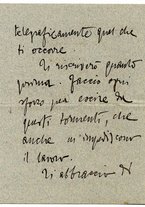 telegraficamente quel che
ti occorre.
Ti riscriverò quanto
prima. Faccio ogni
sforzo per uscire da
questi tormenti, che
anche m'impediscono
il lavoro.
Ti abbraccio